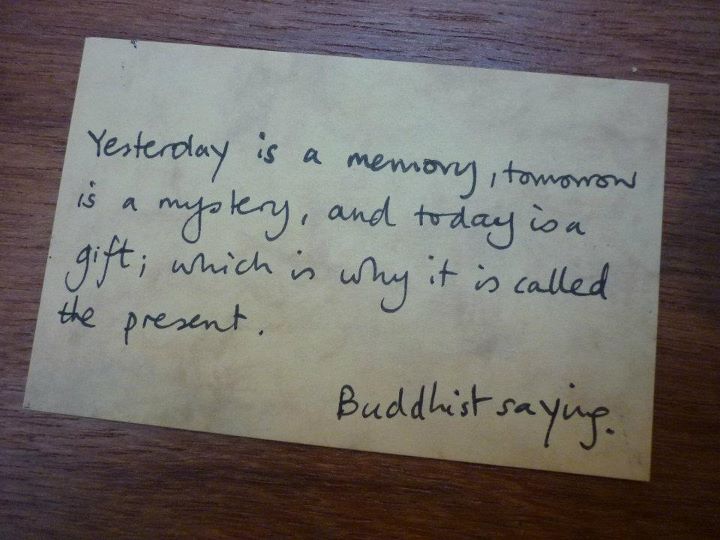 Yesterday is a memory, tomorrow
is a mystery, and today is a
gift; which is why it is called
the present.
Buddhist saying.